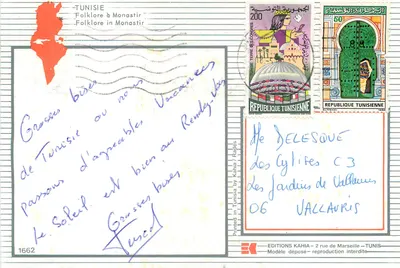 TUNISIE
Folklore à Monastir
Folklore in Monastir
200
RÉPUBLIQUE TUNISIENNE
50
REPUBLIQUE TUNISIENNE
Grosses bises
de Tunisie où nous
passons d'agréables Vacances
Le Soleil est bien au Rendez-Vous
Grosses bises
Pascal
Me DELESQUE
Les Cyclades C3
Les Jardins de Vallauris
06 VALLAURIS
Printed in Tunisia by Kahia
1662
EDITIONS KAHIA - 2 rue de Marseille - TUNIS
Modèle déposé - reproduction interdite